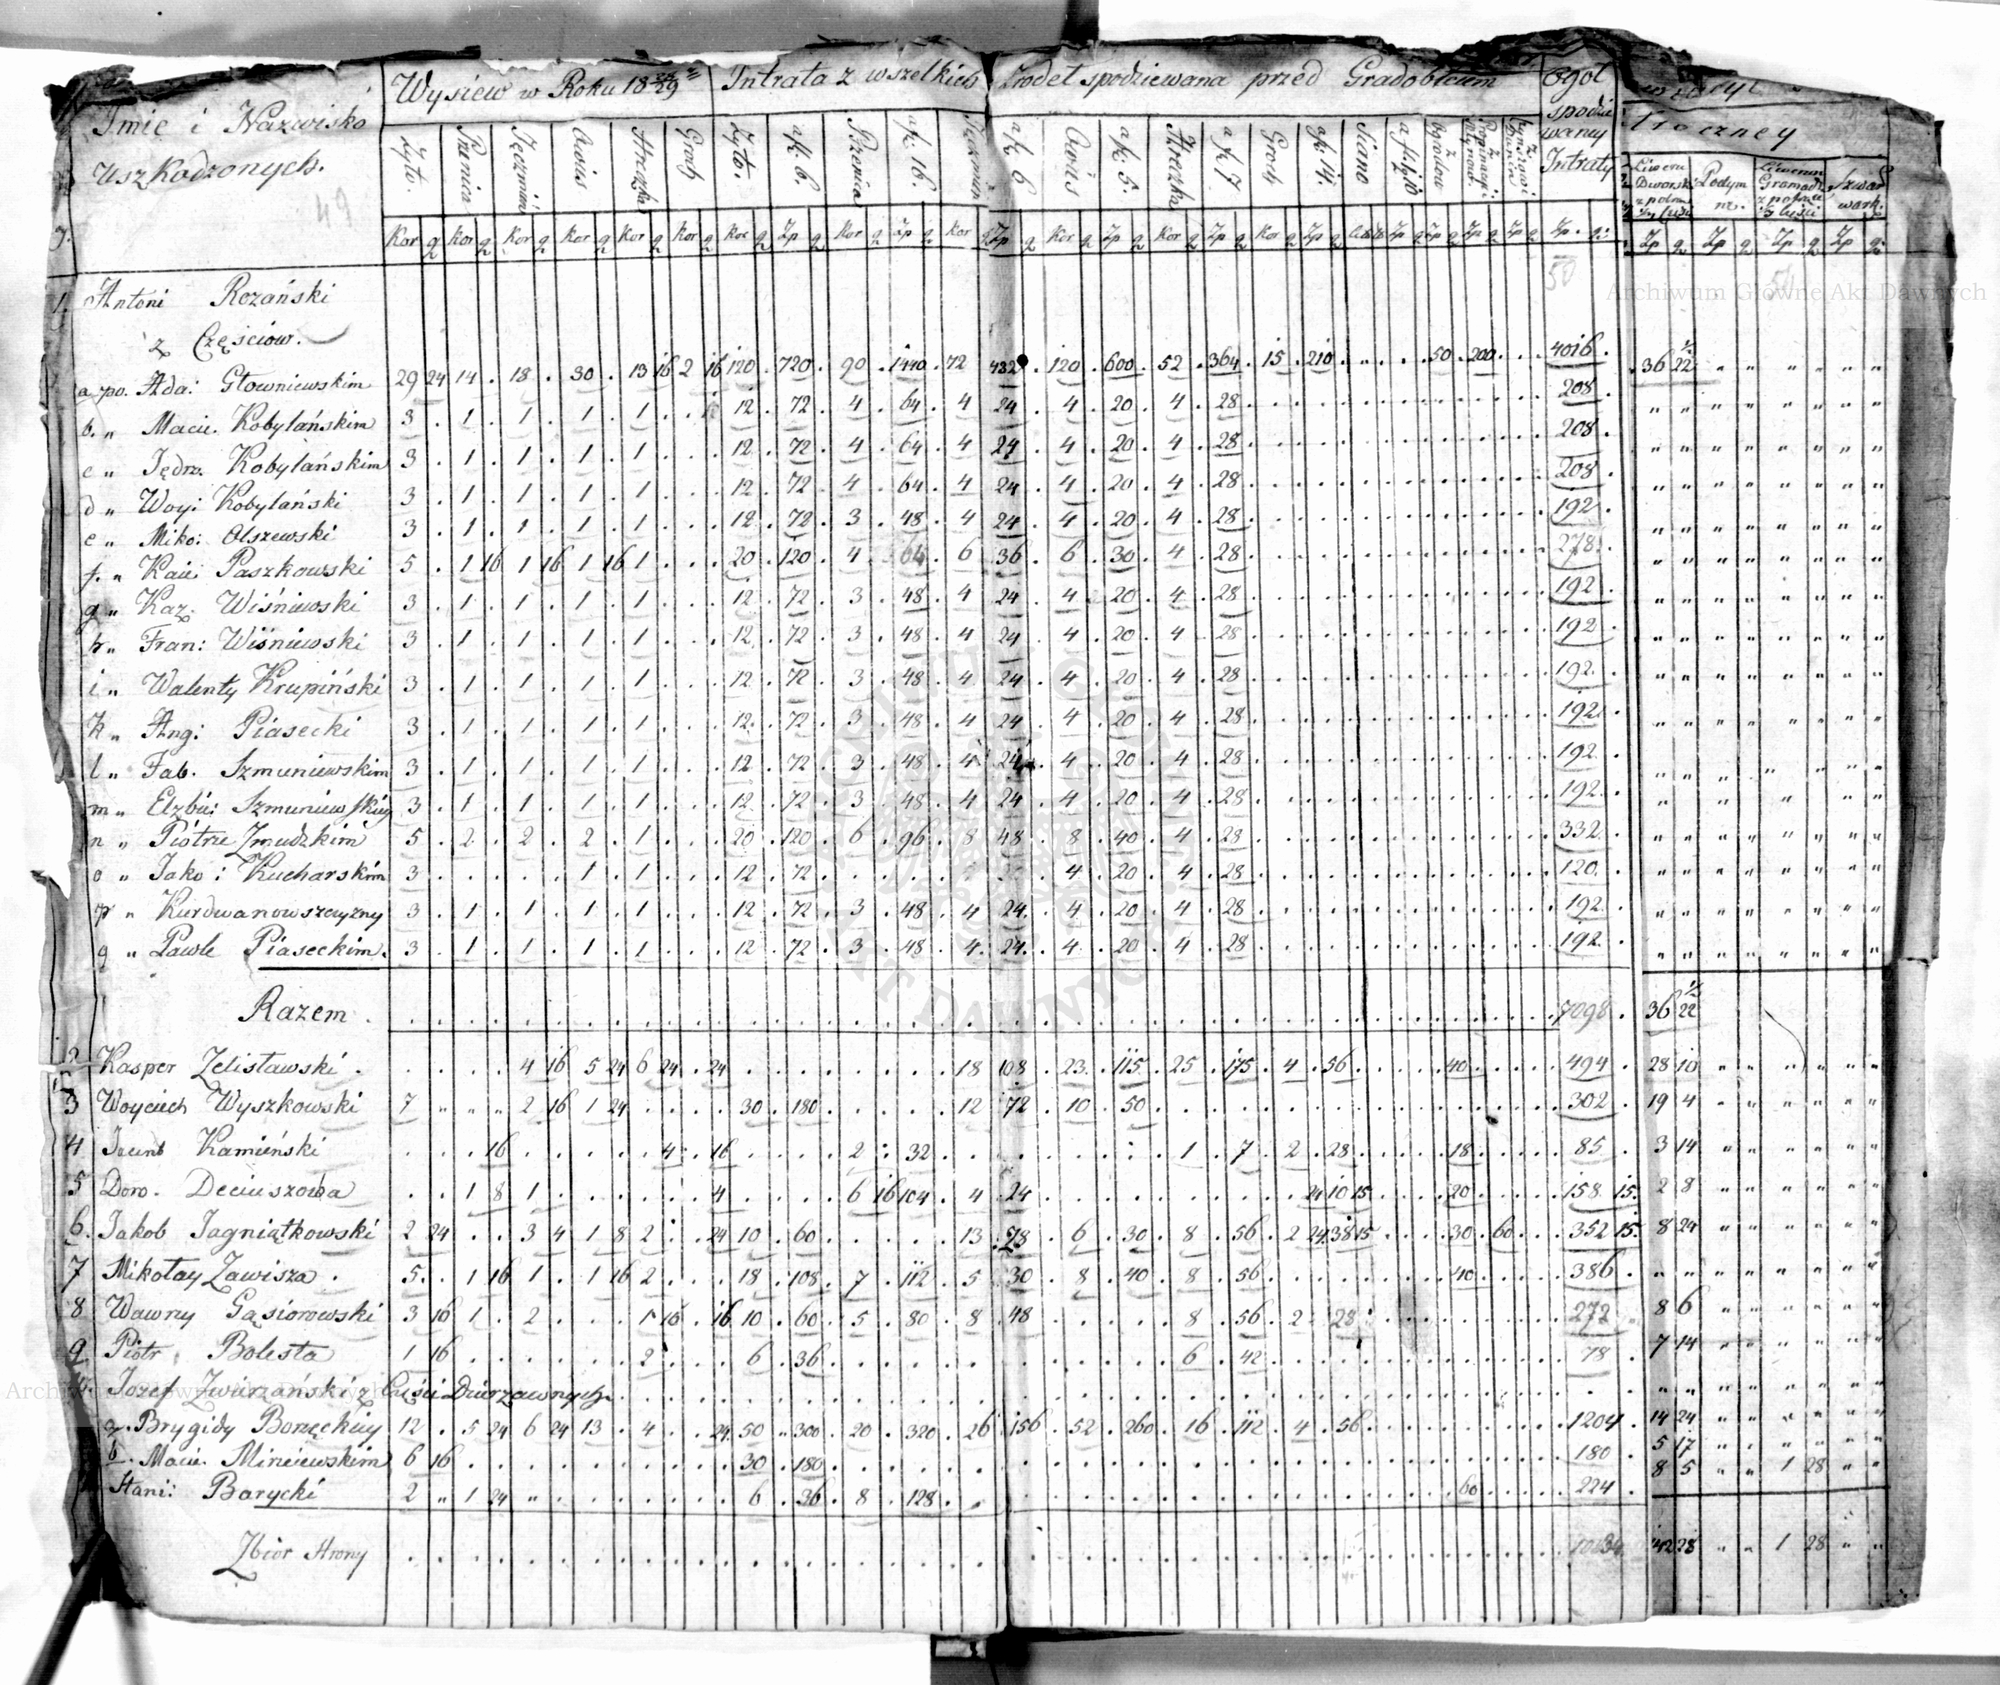 Wysiew w Roku 18 28/29 Intrata z wszelkich Zrodeł spodziewana przed Gradobiciem Ogoł spodziewaney Intraty
Imie i Nazwisko uszkodzonych.
49
Roczney
Żyto. Pszenica Jęczmień Owies Hreczka Groch Żyto. a f. 6. Pszenica a f. 16. Jęczmień a f. 6 Owies a f. 5. Hreczka a f. 7 Groch a f. 14. Siano
Podymne.
Kor g Kor g Kor g Kor g Kor g Kor g Kor g Zp g Kor g Zp g Kor g Zp g Kor g Zp g Kor g Zp g Kor g Zp g Zp g Zp g Zp g Zp g Zp g:
Zp g Zp g Zp g Zp g:
50
1. Antoni Rozański
z Częściow.
a po. Ada: Głowniewskim 29 24 14 . 18 . 30 . 13 16 2 16 120 . 720 . 90 . 1440 . 72 432 . 120 . 600 . 52 . 364 . 15 . 210 . 50 . 200 . 4016 . 36 22 1/2
b. „ Macie. Kobylańskim 3 . 1 . 1 . 1 . 1 . 12 . 72 . 4 . 64 . 4 24 . 4 . 20 . 4 . 28 . 208
c „ Jędrz. Kobylańskim 3 . 1 . 1 . 1 . 1 . 12 . 72 . 4 . 64 . 4 24 . 4 . 20 . 4 . 28 . 208
d „ Woy: Kobylański 3 . 1 . 1 . 1 . 1 . 12 . 72 . 4 . 64 . 4 24 . 4 . 20 . 4 . 28 . 208
e „ Miko: Olszewski 3 . 1 . 1 . 1 . 1 . 12 . 72 . 3 . 48 . 4 24 . 4 . 20 . 4 . 28 . 192
f. „ Kaie: Paszkowski 5 . 1 16 1 16 1 16 1 . 20 . 120 . 4 . 64 . 6 36 . 6 . 30 . 4 . 28 . 278
g „ Kaz. Wiśniewski 3 . 1 . 1 . 1 . 1 . 12 . 72 . 3 . 48 . 4 24 . 4 . 20 . 4 . 28 . 192
h „ Fran: Wiśniewski 3 . 1 . 1 . 1 . 1 . 12 . 72 . 3 . 48 . 4 24 . 4 . 20 . 4 . 28 . 192
i „ Walenty Krupiński 3 . 1 . 1 . 1 . 1 . 12 . 72 . 3 . 48 . 4 24 . 4 . 20 . 4 . 28 . 192
k „ Ang: Piasecki 3 . 1 . 1 . 1 . 1 . 12 . 72 . 3 . 48 . 4 24 . 4 . 20 . 4 . 28 . 192
l „ Fab. Szmuniewskim 3 . 1 . 1 . 1 . 1 . 12 . 72 . 3 . 48 . 4 24 . 4 . 20 . 4 . 28 . 192
m „ Elzbie: Szmuniewskiey 3 . 1 . 1 . 1 . 1 . 12 . 72 . 3 . 48 . 4 24 . 4 . 20 . 4 . 28 . 192
n „ Piotrze Zmudzkim 5 . 2 . 2 . 2 . 1 . 20 . 120 . 6 . 96 . 8 48 . 8 . 40 . 4 . 28 . 332
o „ Jako: Kucharskim 3 . 1 . 1 . 12 . 72 . 4 . 20 . 4 . 28 . 120
p „ Kurdwanowszczyzny 3 . 1 . 1 . 1 . 1 . 12 . 72 . 3 . 48 . 4 24 . 4 . 20 . 4 . 28 . 192
q „ Pawle Piaseckim. 3 . 1 . 1 . 1 . 1 . 12 . 72 . 3 . 48 . 4 24 . 4 . 20 . 4 . 28 . 192
Razem . 7098 . 36 22 1/2
2 Kasper Zelisławski . 4 16 5 24 6 24 . 24 . 18 108 . 23 . 115 . 25 . 175 . 4 . 56 . 40 . 494 . 28 10
3 Woyciech Wyszkowski 7 „ „ „ 2 16 1 24 . 30 . 180 . 12 72 . 10 . 50 . 302 . 19 4
4 Jacent Kamieński . 16 . 4 . 16 . 2 . 32 . 1 . 7 . 2 . 28 . 18 . 85 . 3 14
5 Doro. Deciuszowa . 1 8 1 . 4 . 6 16 104 . 4 24 . 24 10 15 . 20 . 158 15 . 2 8
6. Jakob Jagniątkowski 2 24 . 3 4 1 8 2 . 24 10 . 60 . 13 78 . 6 . 30 . 8 . 56 . 2 24 38 15 . 30 . 60 . 352 15 . 8 24
7 Mikołay Zawisza . 5 . 1 16 1 . 1 16 2 . 18 . 108 . 7 . 112 . 5 30 . 8 . 40 . 8 . 56 . 40 . 386
8 Wawrzy Gąsiorowski 3 16 1 . 2 . 1 16 . 16 10 . 60 . 5 . 80 . 8 48 . 8 . 56 . 2 . 28 . 272 . 8 6
9 Piotr Bolesta 1 16 . 2 . 6 . 36 . 6 . 42 . 78 . 7 14
Jozef Zwierzański z Części Dzierzawnych
a. Brygidy Borzęckiey 12 . 5 24 6 24 13 . 4 . 24 50 . 300 . 20 . 320 . 26 156 . 52 . 260 . 16 . 112 . 4 . 56 . 1204 . 14 24
b. Macie. Miniewskim 6 16 . 30 . 180 . 180 . 5 17
Stani: Barycki 2 „ 1 24 „ . 6 . 36 . 8 . 128 . 60 . 224 . 8 5 „ „ 1 28
Zbior Strony . 142 28 „ „ 1 28
Archiwum Główne Akt Dawnych
Archiwum Główne Akt Dawnych
ARCHIWUM GŁÓWNE AKT DAWNYCH